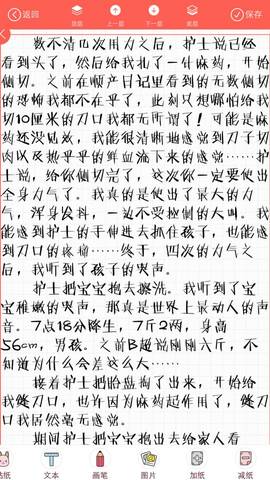 返回
顶层
上一层
下一层
底层
保存
数不清几次用力之后，护士说已经
看到头了，然后给我扎了一针麻药，开始
侧切。之前在顺产日记里看到的无数侧切
的恐怖我都不在乎了，此刻只想哪怕给我
切10厘米的刀口我都无所谓了！可能是麻
药还没见效，我能很清晰地感觉到刀子切
肉以及热乎乎的鲜血流下来的感觉……护
士说，给你侧切完了，这次你一定要使出
全身力气了。我真的是使出了最大的力
气，浑身发抖，一边不受控制的大叫。我
能感到护士的手伸进去抓住孩子，也能感
到刀口的疼痛……终于，四次的力气之
后，我听到了孩子的哭声。
护士把宝宝抱去擦洗。我听到了宝
宝稚嫩的哭声，那真是世界上最动人的声
音。7点18分降生，7斤2两，身高
56cm，男孩。之前B超说刚刚六斤，不
知道为什么会差这么大……
接着护士把胎盘掏了出来，开始给
我缝刀口，也许因为麻药起作用了，缝刀
口我居然毫无感觉。
期间护士把宝宝抱出去给家人看
贴纸
文本
画笔
图片
加纸
减纸